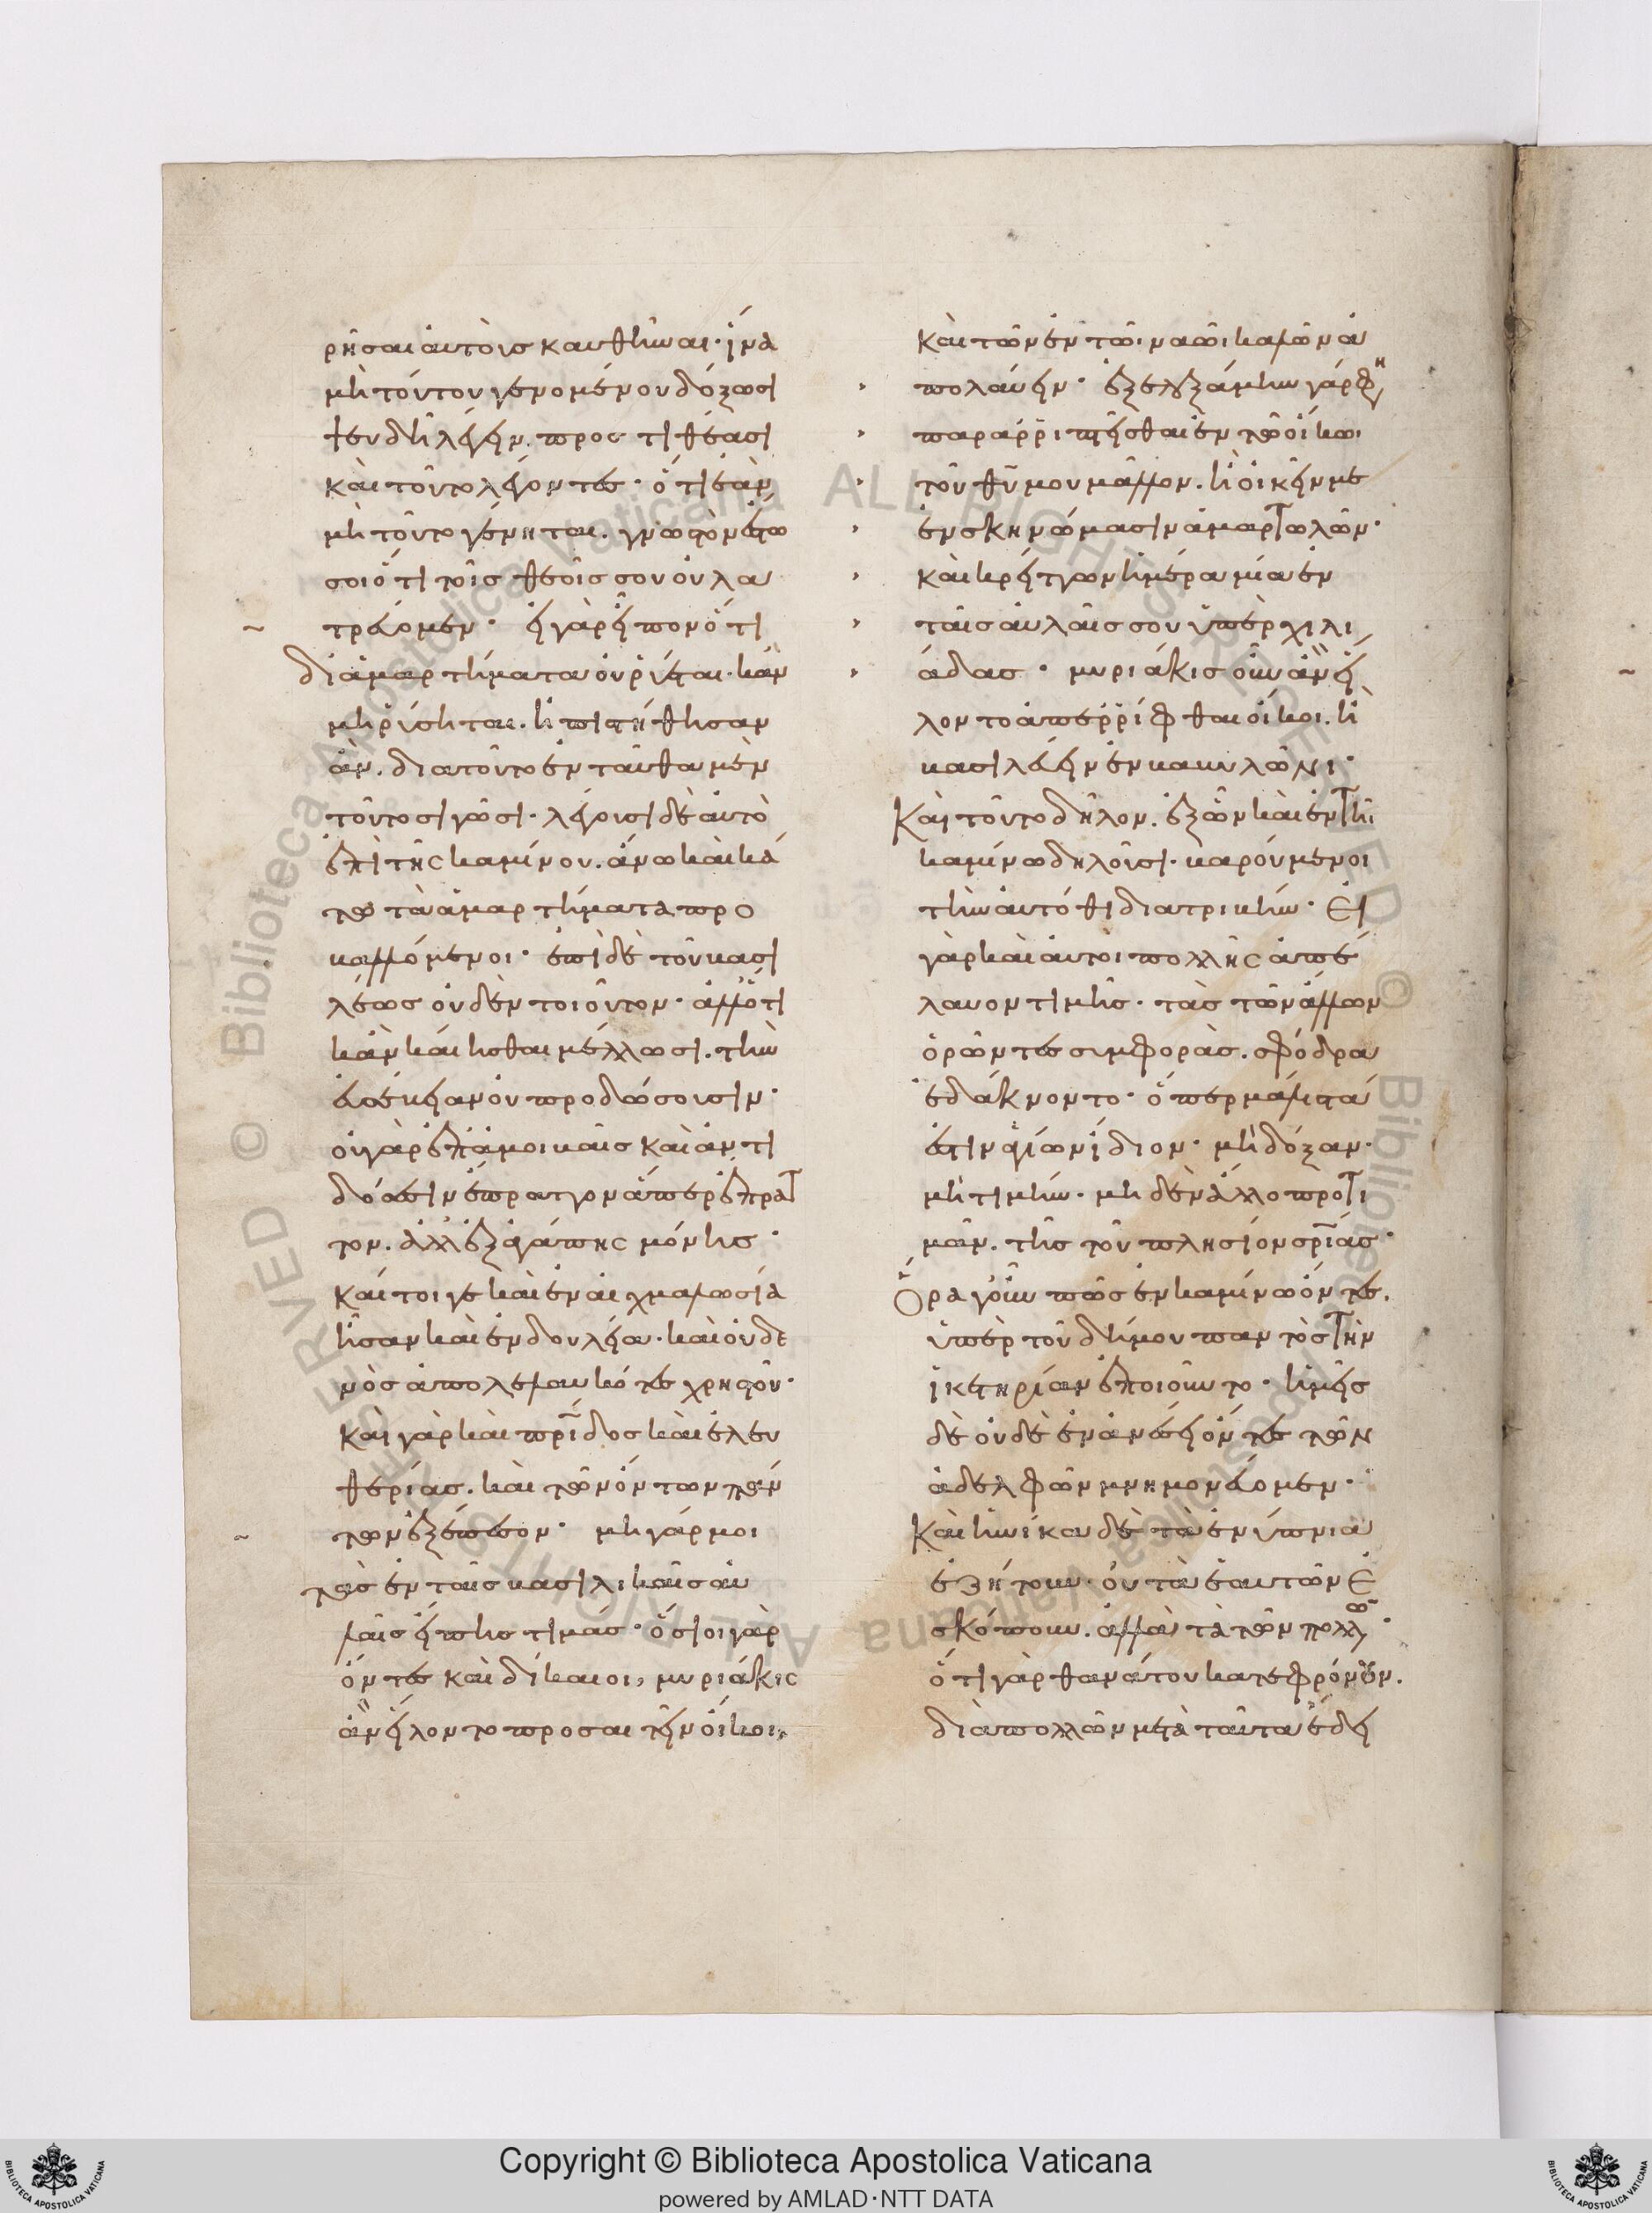 ρησαι αὐτοὺς καυθῆναι· ἵνα
μὴ τούτου γενομένου δόξωσι
ψευδῆ λέγειν. προστιθέασι
καὶ τοῦτο λέγοντες· ὅτι ἐὰν
μὴ τοῦτο γένηται. γνωστὸν ἔστω
σοι ὅτι τοῖς θεοῖς σου οὐ λα
τρεύομεν· εἰ γὰρ εἶπον ὅτι
δι ἁμαρτήματα οὐ ῥύεται. κἂν
μὴ ῥύσηται. ἠπιστήθησαν
ἄν. διὰ τοῦτο ἐνταῦθα μὲν
τοῦτο σιγῶσι. λέγουσι δὲ αὐτὸ
ἐπὶ τῆς καμίνου. ἄνω καὶ κά
τω τὰ ἁμαρτήματα προ
βαλλόμενοι· ἐπὶ δὲ τοῦ βασι
λέως οὐδὲν τοιοῦτον· ἀλλ ὅτι
κἂν καίεσθαι μέλλωσι. τὴν
εὐσέβειαν οὐ προδώσουσιν·
οὐ γὰρ ἐπ ἀμοιβαῖς καὶ ἀντι
δόσεσιν ἔπραττον ἅπερ ἔπρατ
τον. ἀλλ ἐξ ἀγάπης μόνης·
καίτοιγε καὶ ἐν αἰχμαλωσία
ἦσαν καὶ ἐν δουλεία. καὶ οὐδε
νὸς ἀπολελαυκότες χρηστοῦ·
καὶ γὰρ καὶ πρίδος καὶ ἐλευ
θερίας. καὶ τῶν ὄντων πάν
των ἐξέπεσον· μὴ γάρ μοι
τὰς ἐν ταῖς βασιλικαῖς αὐ
λαῖς εἴπης τιμάς· ὅσιοι γὰρ
ὄντες καὶ δίκαιοι, μυριάκις
ἂν εἵλοντο προσαιτεῖν οἴκοι,
καὶ τῶν ἐν τῶι ναῶι καλῶν ἀ
πολαύειν· ἐξελεξάμην γάρ φη
παραρριπτεῖσθαι ἐν τῶ οἴκω
τοῦ θυ μου μᾶλλον. ἢ οἰκεῖν με
ἐν σκηνώμασιν ἁμαρτωλῶν·
καὶ κρείττων ἡμέρα μία ἐν
ταῖς αὐλαῖς σου ὑπὲρ χιλι
άδας· μυριάκις οὖν ἂν εἵ
λοντο ἀπερρίφθαι οἴκοι. ἢ
βασιλεύειν ἐν βαβυλῶνι·
Καὶ τοῦτο δῆλον. ἐξ ὧν καὶ ἐν τῆ
καμίνω δηλοῦσι. βαρούμενοι
τὴν αὐτόθι διατριβήν· Εἰ
γὰρ καὶ αὐτοὶ πολλῆς ἀπέ
λαυον τιμῆς. τὰς τῶν ἄλλων
ὁρῶντες συμφορὰς. σφόδρα
ἐδάκνοντο· ὅπερ μάλιστά
ἐστιν ἁγίων ἴδιον· μὴ δόξαν·
μὴ τιμὴν. μηδὲν ἄλλο προτι
μᾶν. τῆς τοῦ πλησίον σρίας·
Ὅρα γοῦν πῶς ἐν καμίνω ὄντες.
ὑπὲρ τοῦ δήμου παντὸς τὴν
ἱκετηρίαν ἐποιοῦντο· ἡμεῖς
δὲ οὐδὲ ἐν ἀνέσει ὄντες τῶν
ἀδελφῶν μνημονεύομεν·
Καὶ ἡνίκα δὲ τὰ ἐνύπνια
ἐζήτουν. οὐ τὰ ἑαυτῶν ἐ
σκόπουν. ἀλλὰ τὰ τῶν πολλῶν·
ὅτι γὰρ θανάτου κατεφρόνουν.
διὰ πολλῶν μετὰ ταῦτα ἔδει